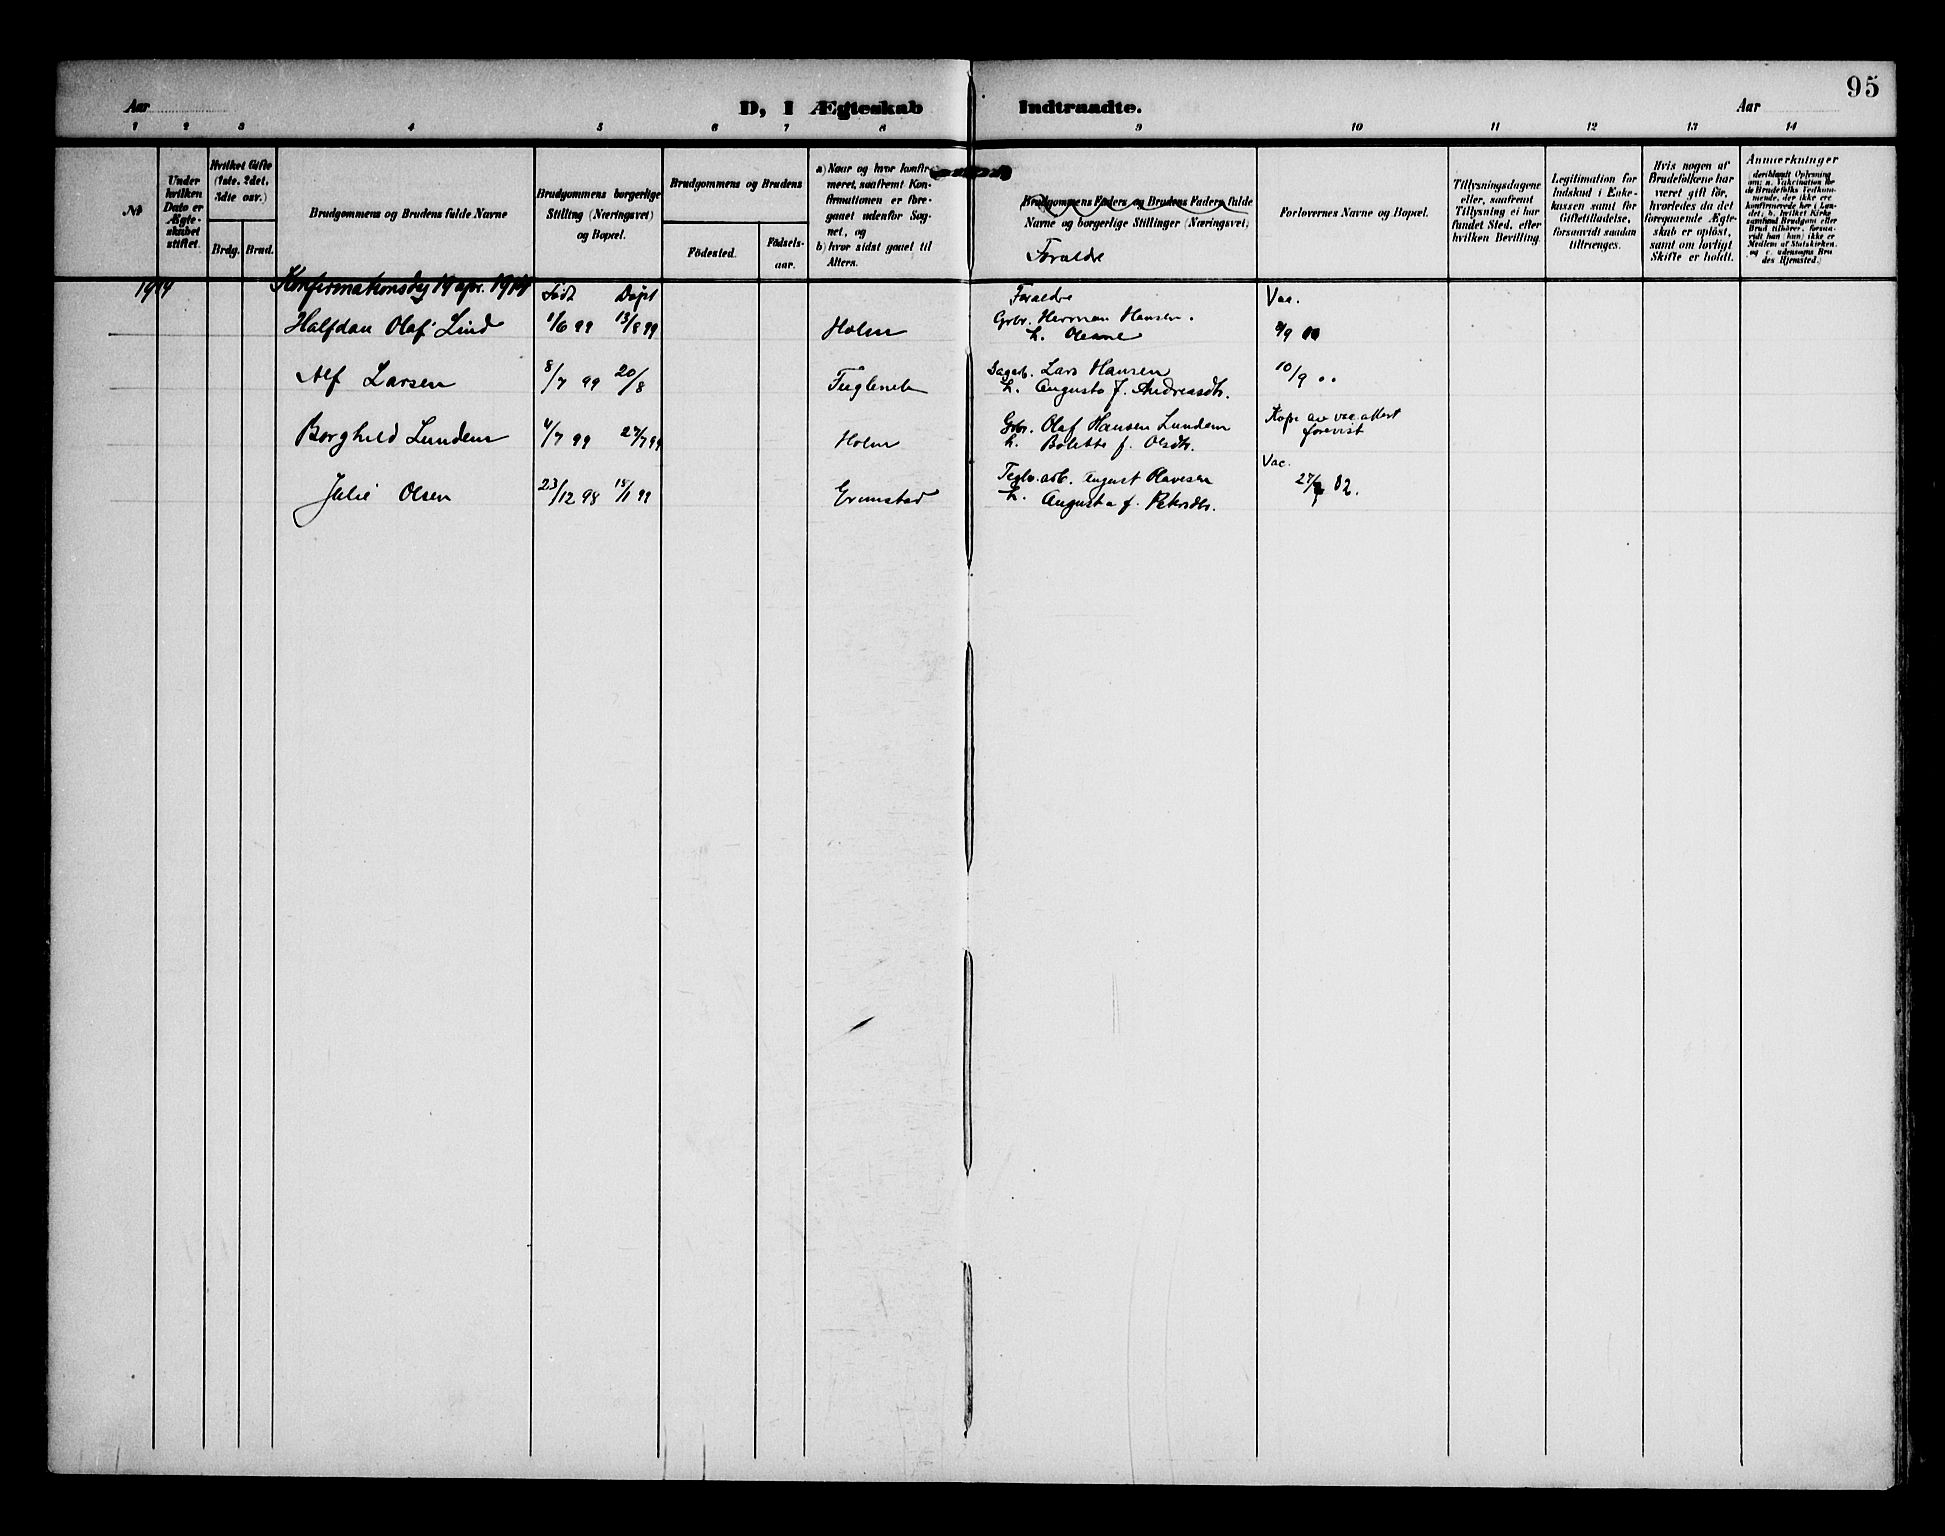 95
Aar D, I Ægteskab Indtraadte. Aar
1 2 3 4 5 6 7 8 9 10 11 12 13 14
№
Under hvilken Dato er Ægteskabet stiftet.
Hvilket Gifte (1ste, 2det, 3die osv.)
Brdg. Brud.
Brudgommens og Brudens fulde Navne
Brudgommens borgerlige Stilling (Næringsvei) og Bopæl.
Brudgommens og Brudens
Födested.
Födselsaar.
a) Naar og hvor konfirmeret, saafremt Konfirmationen er foregaaet udenfor Sognet, og
b) hvor sidst gaaet til Altern.
Brudgommens Faders og Brudens Faders fulde Navne og borgerlige Stillinger (Næringsvei)
Foraldre
Forlovernes Navne og Bopæl.
Tillysningsdagene eller, saafremt Tillysning ei har fundet Sted, efter hvilken Bevilling.
Legitimation for Indskud i Enkekassen samt for Giftetilladelse, forsaavidt saadan tiltrænges.
Hvis nogen af Brudefolkene har været gift för, hvorledes da det foregaaende Ægteskab er oplöst, samt om lovligt Skifte er holdt.
Anmærkninger
deriblandt Oplysning om: a. Vakcination for de Brudefolks Vedkommende, der ikke ere konfirmerede her i Landet; b. hvilket Kirkesamfund Brudgom eller Brud tilhører, forsaavidt han (hun) ikke er Medlem af Statskirken, og c. udensogns Brudes Hjemsted.)
1914 Konfirmationsdag 19 apr. 1914 Født Døpt Foraldre Vac.
Halfdan Olaf Lind 1/6 99 13/8 99 Holm Grbr. Herman Hansen. 8/9 00
h. Oleane
Alf Larsen 8/7 99 20/8 Fuglevik Dagarb. Lars Hansen 10/9 ..
h. Augusta f. Andreasdtr.
Borghild Lunden 4/7 99 27/7 99 Holm Grbr. Olaf Hansen Lunden Kopi av vac. attest
h. Bolette f. Olsdtr. forevist
Vac.
Julie Olsen 23/12 98 15/1 99 Grimstad Teglv.arb. August Olavesen 27/ 02.
h. Augusta f. Petersdtr.